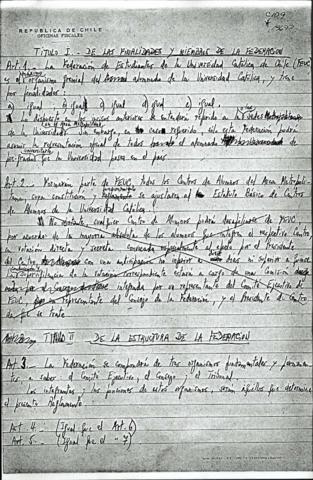 REPUBLICA DE CHILE
OFICINAS FISCALES
TITULO I.- DE LAS FINALIDADES Y MIEMBROS DE LA FEDERACION
Art. 1.- La Federación de Estudiantes de la Universidad Católica de Chile (FEUC)
es el organismo gremial del alumnado de la Universidad Católica, y tiene
por finalidades:
a) igual ; b) igual c) igual d) igual e) igual.
Lo dispuesto en los incisos anteriores se entenderá referido a la Sedes Metropolitana
de la Universidad. Sin embargo, en caso esta Federación podrá
asumir la representación oficial de todo el alumnado
de la Universidad en el país.
Art. 2.- Formarán parte de FEUC, todos los Centros de Alumnos del Area Metropoli-
tana, cuya constitución y se ajusten al Estatuto Básico de Centros
de Alumnos de la Universidad Católica.
No obstante, cualquier Centro de Alumnos podrá desafiliarse de FEUC
por acuerdo de la mayoría absoluta de los alumnos que integran el respectivo Centro,
en votación directa y secreta, convocada al efecto por el Presidente
del Centro, con una anticipación no inferior a días ni superior a quince
de la votación correspondiente estará a cargo de una comisión
integrada por un representante del Comité Ejecutivo de
FEUC, un representante del Consejo de la Federación, y el Presidente del Centro
de que se trate.
TITULO II DE LA ESTRUCTURA DE LA FEDERACION
Art 3.- La Federación se compondrá de tres organismos fundamentales y permanen-
tes a saber: el Comité Ejecutivo, el Consejo y el Tribunal.
Los integrantes y las funciones de estos organismos, serán aquellos que determine
el presente Reglamento.
Art. 4.- (Igual que el Art. 6)
Art. 5.- (Igual que el " 7)